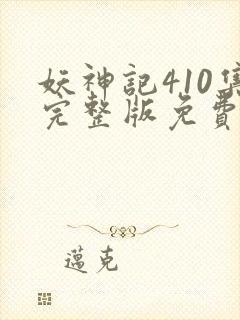 妖神記410集
完整版免費
邁克